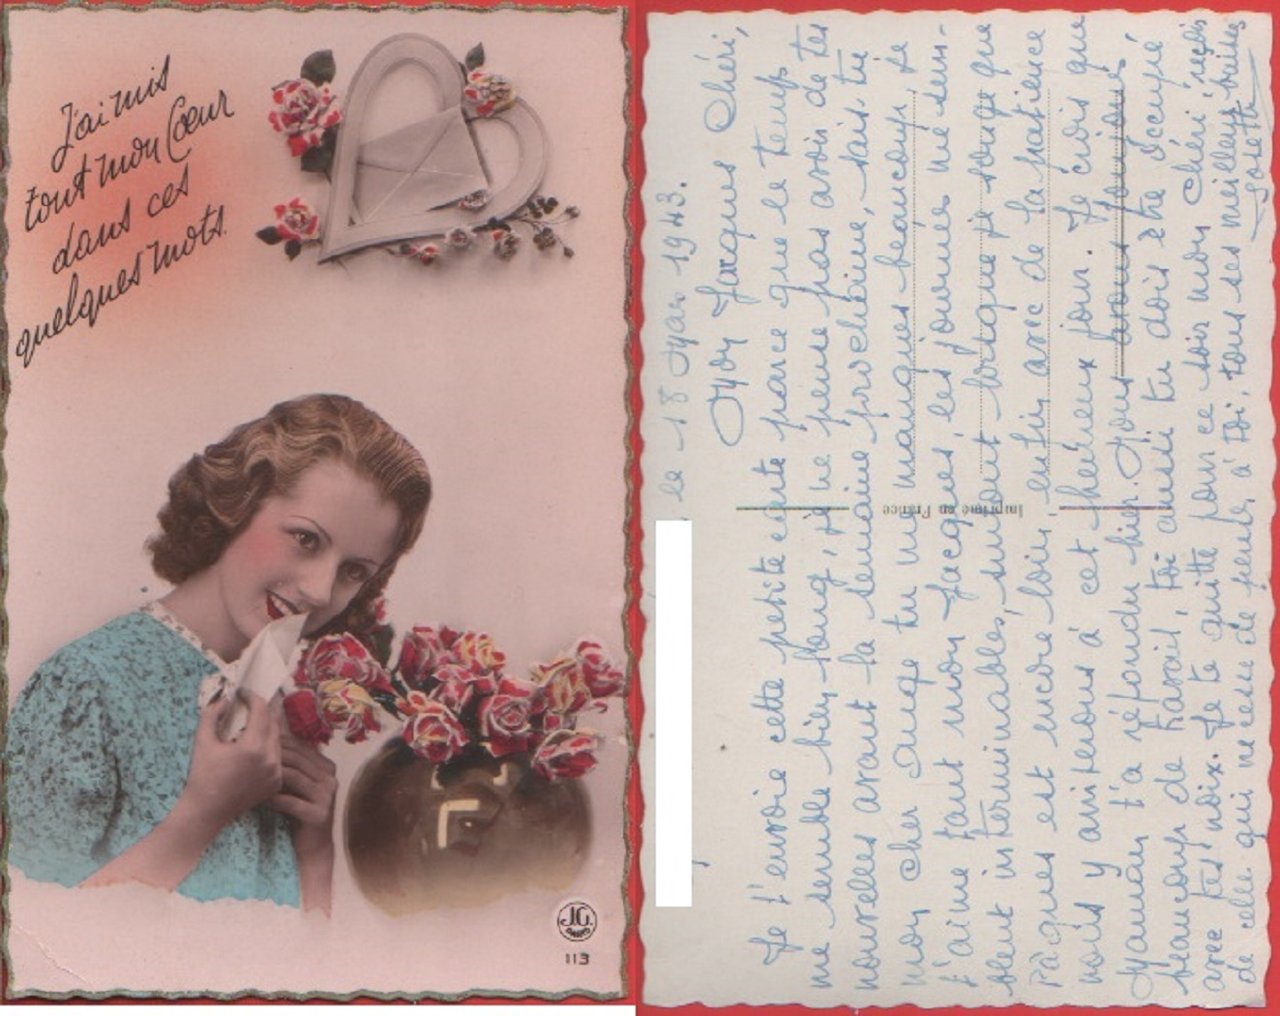 J'ai mis
tout mon Cœur
dans ces
quelques mots.
J.G.
PARIS
113
le 18 Mars 1943.
Mon Jacques Chéri,
Je t'envoie cette petite carte parce que le temps
me semble bien long, je ne pense pas avoir de tes
nouvelles avant la semaine prochaine, sais tu
mon cher ange tu me manques beaucoup, je
t'aime tant mon Jacques, les journées me sem-
blent interminables, surtout lorsque je songe que
Pâques est encore loin, enfin avec de la patience
nous y arriverons à cet heureux jour. Je crois que
Maman t'a répondu hier. Nous avons
beaucoup de travail, toi aussi tu dois être occupé
avec tes noix. Je te quitte pour ce soir mon chéri reçois
de celle qui ne cesse de penser à toi, tous ses meilleurs baisers
Josette
Imprimé en France